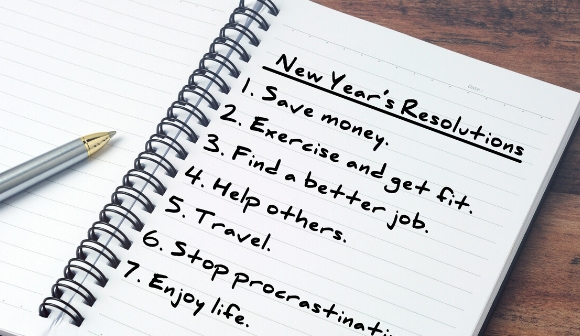 New Year's Resolutions
1. Save money.
2. Exercise and get fit.
3. Find a better job.
4. Help others.
5. Travel.
6. Stop procrastinati
7. Enjoy life.